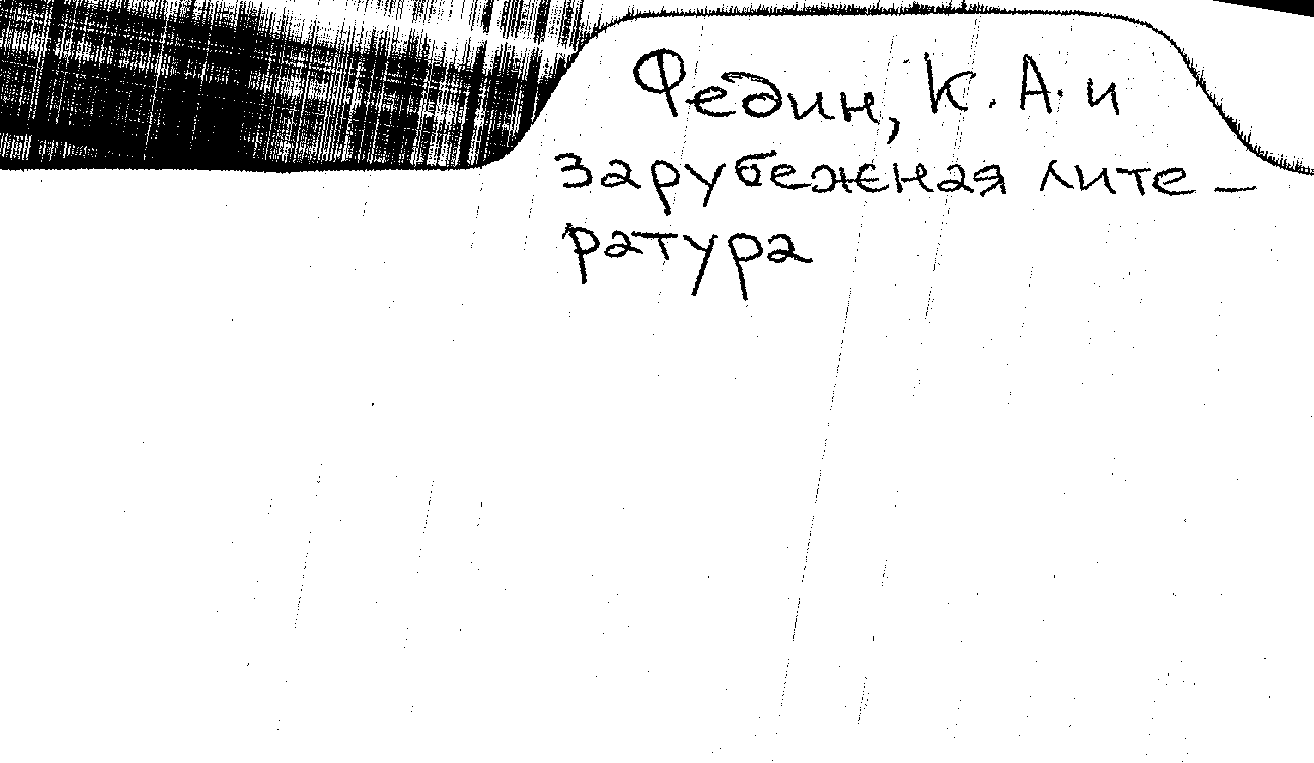 Федин, К. А. и
зарубежная лите-
ратура